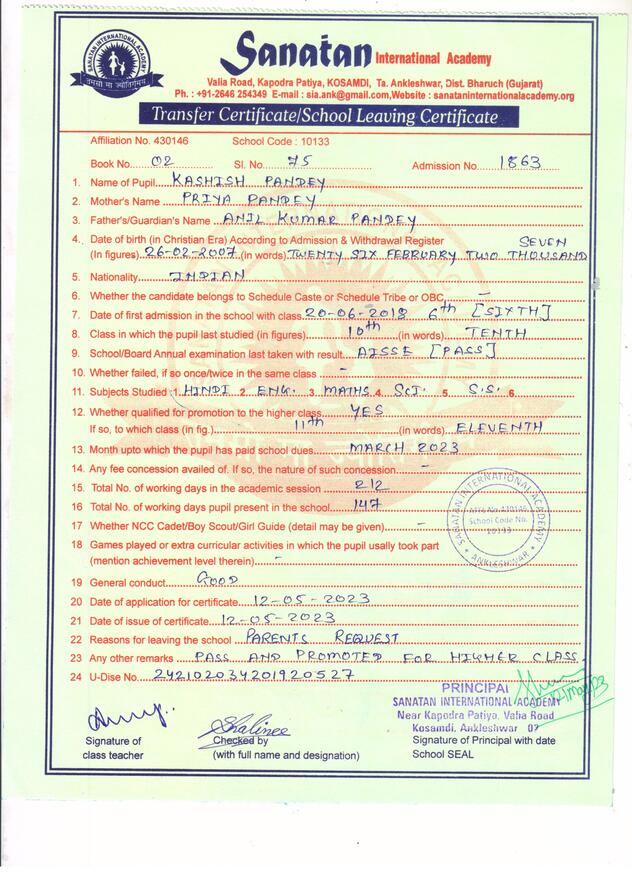 SANATAN INTERNATIONAL ACADEMY
तमसो मा ज्योतिर्गमय
Sanatan International Academy
Valia Road, Kapodra Patiya, KOSAMDI, Ta. Ankleshwar, Dist. Bharuch (Gujarat)
Ph. : +91-2646 254349 E-mail : sia.ank@gmail.com,Website : sanataninternationalacademy.org
Transfer Certificate/School Leaving Certificate
Affiliation No. 430146 School Code : 10133
Book No. 02 Sl. No. 75 Admission No. 1863
1. Name of Pupil KASHISH PANDEY
2. Mother's Name PRIYA PANDEY
3. Father's/Guardian's Name ANIL KUMAR PANDEY
4. Date of birth (in Christian Era) According to Admission & Withdrawal Register SEVEN
(In figures) 26-02-2007 (in words) TWENTY SIX FEBRUARY TWO THOUSAND
5. Nationality INDIAN
6. Whether the candidate belongs to Schedule Caste or Schedule Tribe or OBC -
7. Date of first admission in the school with class 20-06-2018 6th [SIXTH]
8. Class in which the pupil last studied (in figures) 10th (in words) TENTH
9. School/Board Annual examination last taken with result AISSE [PASS]
10. Whether failed, if so once/twice in the same class -
11. Subjects Studied 1. HINDI 2. ENG. 3. MATHS 4. SCI. 5. S.S. 6.
12. Whether qualified for promotion to the higher class YES
If so, to which class (in fig.) 11th (in words) ELEVENTH
13. Month upto which the pupil has paid school dues MARCH 2023
14. Any fee concession availed of. If so, the nature of such concession -
15. Total No. of working days in the academic session 212
16 Total No. of working days pupil present in the school 147
17 Whether NCC Cadet/Boy Scout/Girl Guide (detail may be given) -
18 Games played or extra curricular activities in which the pupil usally took part
(mention achievement level therein) -
SANATAN INTERNATIONAL ACADEMY
Affi. No. 430146
School Code No.
10133
ANKLESHWAR
19 General conduct GOOD
20 Date of application for certificate 12-05-2023
21 Date of issue of certificate 12-05-2023
22 Reasons for leaving the school PARENTS REQUEST
23 Any other remarks PASS AND PROMOTED FOR HIGHER CLASS
24 U-Dise No. 24210203420192​0527
PRINCIPAL
SANATAN INTERNATIONAL ACADEMY
Near Kapodra Patiya, Valia Road
Kosamdi, Ankleshwar
Shalinee
Signature of class teacher
Checked by (with full name and designation)
Signature of Principal with date
School SEAL